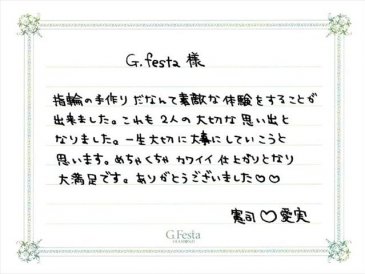 G.festa 様
指輪の手作りだなんて素敵な体験をすることが
出来ました。これも2人の大切な思い出と
なりました。一生大切に大事にしていこうと
思います。めちゃくちゃカワイイ仕上がりとなり
大満足です。ありがとうございました♡♡
憲司♡愛実
G.Festa